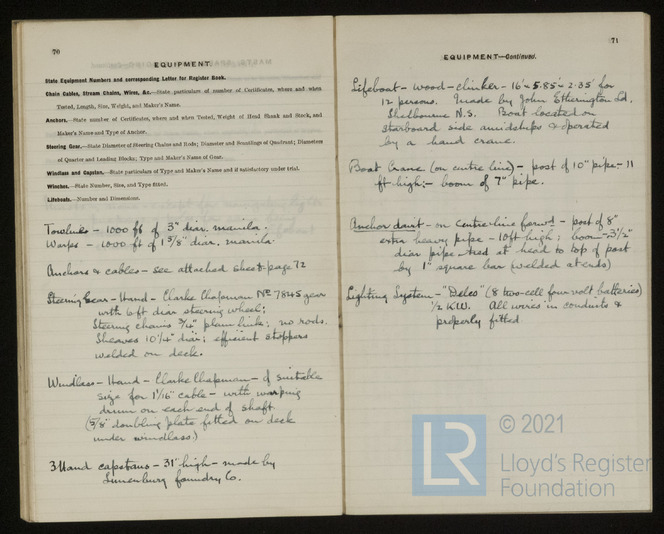 70
EQUIPMENT.
State Equipment Numbers and corresponding Letter for Register Book.
Chain Cables, Stream Chains, Wires, &c.—State particulars of number of Certificates, where and when
Tested, Length, Size, Weight, and Maker's Name.
Anchors.—State number of Certificates, where and when Tested, Weight of Head Shank and Stock, and
Maker's Name and Type of Anchor.
Steering Gear.—State Diameter of Steering Chains and Rods; Diameter and Scantlings of Quadrant; Diameters
of Quarter and Leading Blocks; Type and Maker's Name of Gear.
Windlass and Capstan.—State particulars of Type and Maker's Name and if satisfactory under trial.
Winches.—State Number, Size, and Type fitted.
Lifeboats.—Number and Dimensions.
Towlines - 1000 ft of 3" diar. manila.
Warps - 1000 ft of 1 5/8" diar. manila.
Anchors & cables - see attached sheet page 72
Steering Gear - Hand - Clarke Chapman No 7845 gear
with 6 ft diar steering wheel;
Steering chains 3/4" plain link; no rods.
Sheaves 10 1/4" diar; efficient stoppers
welded on deck.
Windlass - Hand - Clarke Chapman - of suitable
size for 1 1/16" cable - with warping
drum on each end of shaft
(3/8" doubling plate fitted on deck
under windlass.)
3 Hand capstans - 31" high - made by
Lunenburg foundry Co.
71
EQUIPMENT—Continued.
Lifeboat - wood - clinker - 16' x 5.85' x 2.35' for
12 persons. Made by John Etherington Ld.
Shelbourne N.S. Boat located on
starboard side amidships & operated
by a hand crane.
Boat Crane (on centre line) - post of 10" pipe - 11
ft high; - boom of 7" pipe.
Anchor davit - on centre-line forwd - post of 8"
extra heavy pipe - 10 ft high; boom - 3 1/2"
diar pipe - tied at head to top of post
by 1" square bar (welded at ends)
Lighting System - "Delco" (8 two-cell four volt batteries)
1/2 KW. All wires in conduits &
properly fitted.
LR
© 2021
Lloyd's Register
Foundation